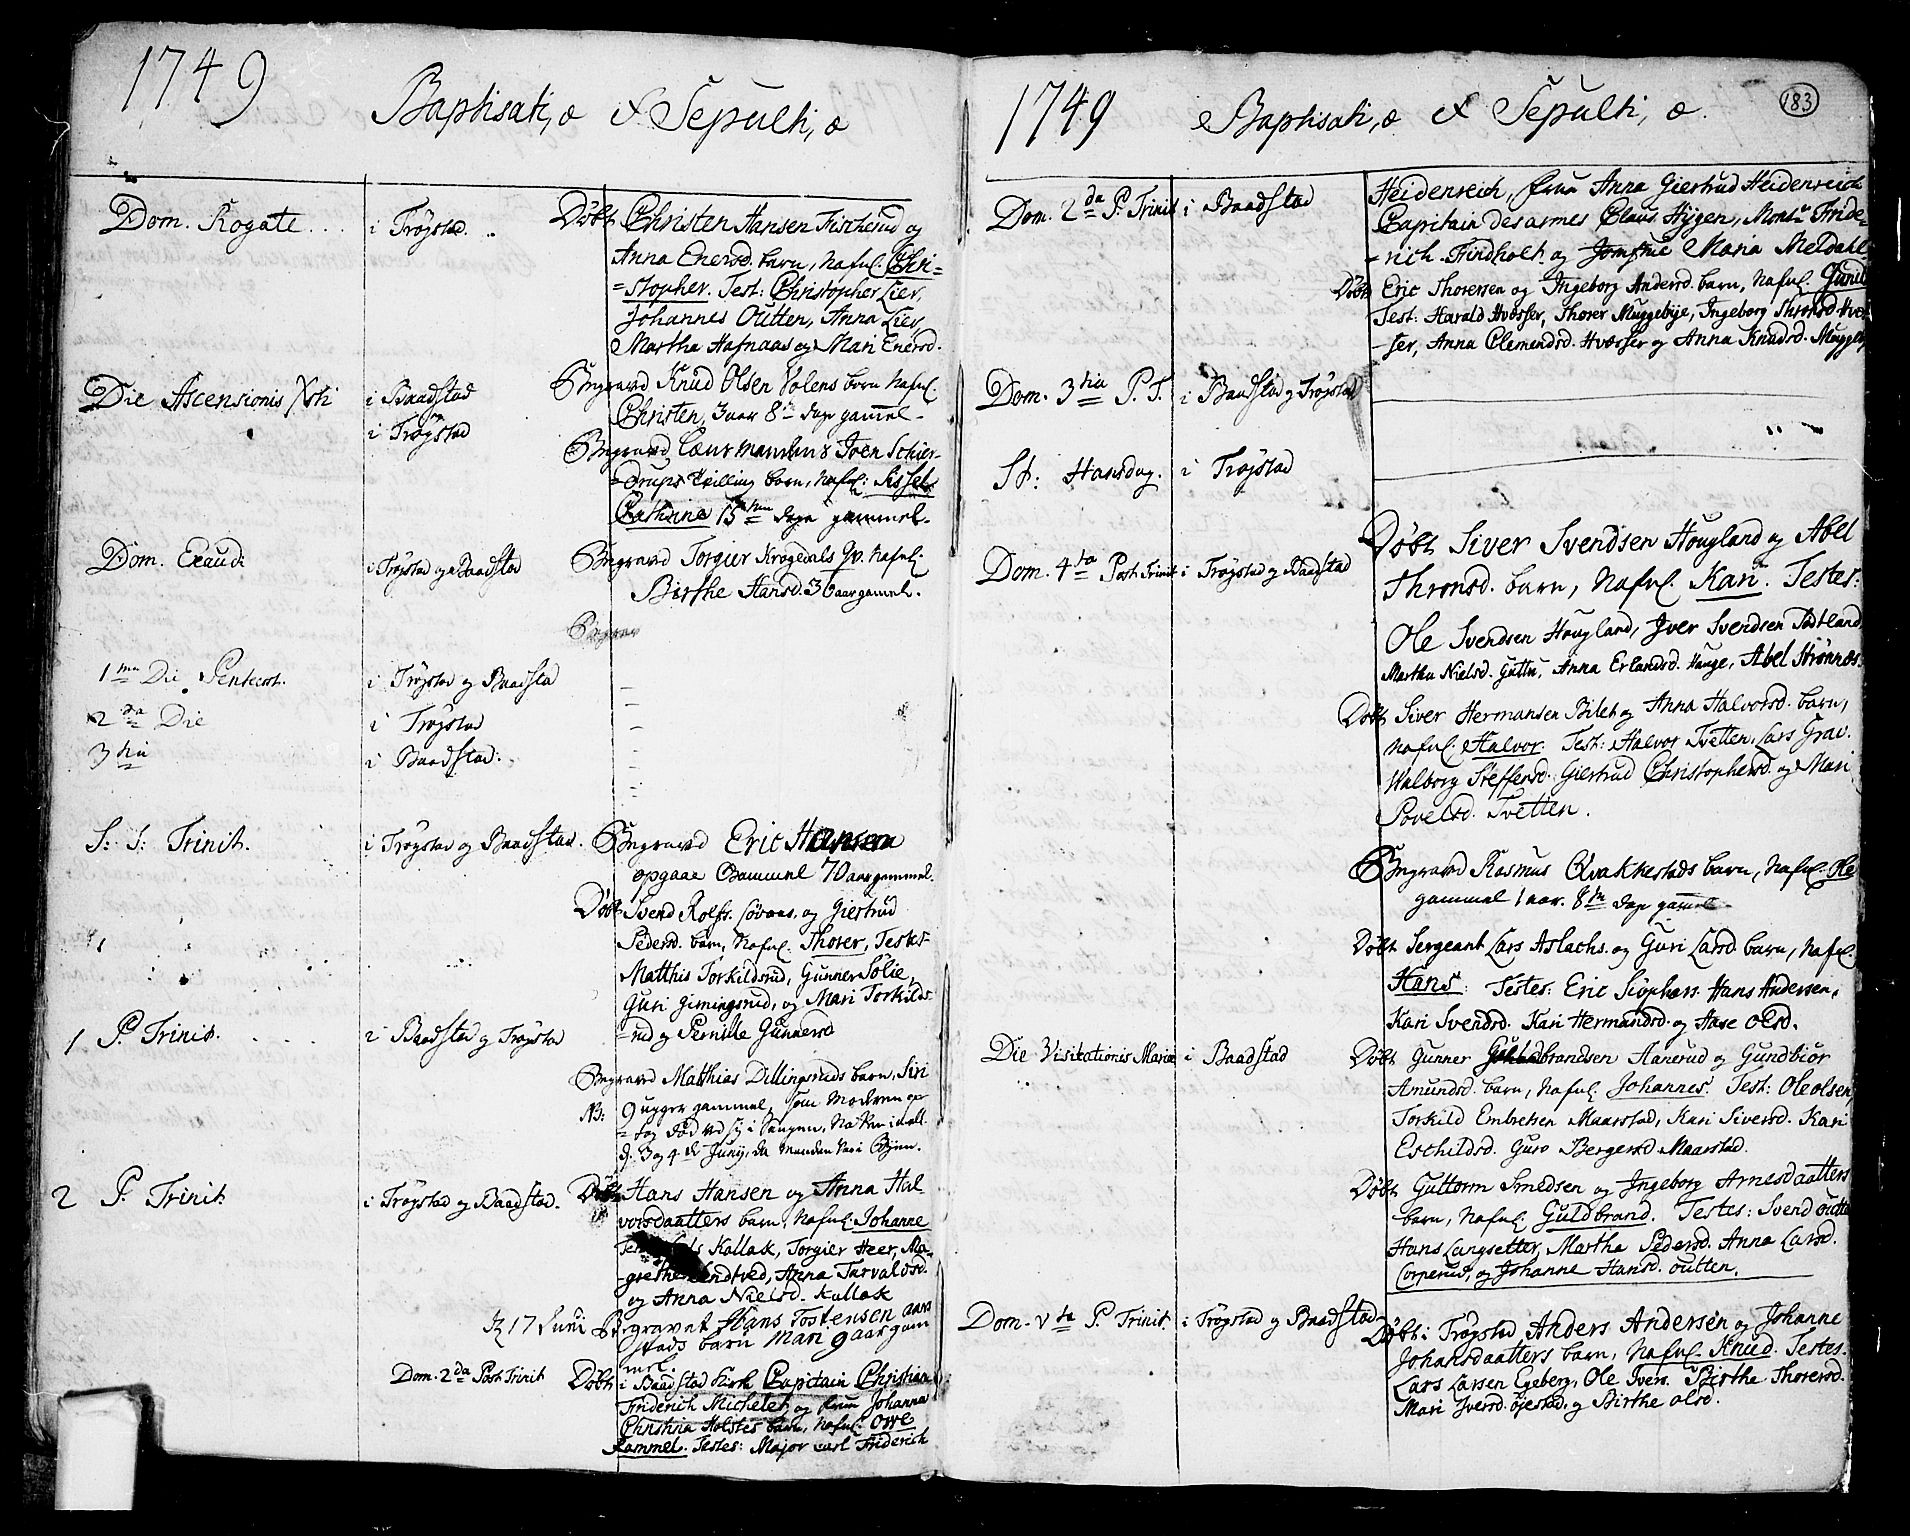 1749
Baptisati, æ & Sepulti, æ
Dom. Rogate . . . i Trøgstad . .
Døbt Christen Hansen Fischerud og
Anna Enersd. barn, Nafnl. Chri=
=stopher. Test: Christopher Lier,
Johannes Outten, Anna Lier,
Martha Hafnaas og Mari Enersd.
Die Ascensionis Xsti i Baadstad
og
i Trøgstad
Begravd Knud Olsen Volens barn Nafnl.
Christen, 3 aar 8 dage gammel -
Begravd Joen Schier-
=drups tvilling barn, Nafnl: Sissel
Cathrina 15 dage gammel.
Dom. Exaudi i Trøgstad og Baadstad
Begravd Torgier Krogedals Nafnl.
Birthe Hansd. 36 aar gamel.
Begrav
1ma Die Pentecost. i Trøgstad og Baadstad
2da Die i Trøgstad
3tia i Baadstad.
S: S: Trinit. i Trøgstad og Baadstad.
Begravd Eric Hansen
opgaae Gammel 70 aar gammel.
Døbt Svend Rolfs. Løvaas, og Giertrud
Pedersd. barn, Nafnl. Thorer, Testes
Matthis Torkildsrud, Gunner Solie,
Guri Gimingsrud, og Mari Torkilds
=rud og Pernille Gunnersd
1 P. Trinit. . . . . i Baadstad og Trøgstad
Begravd Matthias Dillingsruds barn, Siri
NB: 9 uger gammel, som Moderen
2 P. Trinit i Trøgstad og Baadstad.
Døbt Hans Hansen og Anna Hal-
vorsdaatters barn, Nafnl: Johanne
Kallak, Torgier Heer, Ma-
-grethe Lundtved, Anna Tarvaldsd.
og Anna Nielsd. Kallak
17 Juni Begravet Hans Tostensen
stads barn Mari 9 aar gam
mel.
Dom. 2da Post Trinit
Døbt i Baadstad Kirk Capitain Christian
Friderich Michelet og Frue Johanna
Christina Holstes barn, Nafnl: Owe
Rammel. Testes: Major Carl Friderich
183
1749
Baptisati, æ & Sepulti, æ.
Dom. 2da P. Trinit i Baadstad
Heidenreich, Frue Anna Giertrud Heidenreich
Capitain des armes Claus Hygen, Monsr Fride-
-rich Findholt og Jomfrue Maria Meldahl
Døbt Eric Thoresen og Ingeborg Andersd. barn, Nafnl. Gunild
Test: Harald Hvæsser, Thorer Muggebye, Ingeborg Thronsd. Hvæs
-ser, Anna Clemendsd. Hvæsser og Anna Knudsd. Muggeby
Dom. 3tia P. T. i Baadstad og Trøgstad
St: Hansdag. i Trøgstad
Dom. 4ta Post Trinit i Trøgstad og Baadstad
Døbt Siver Svendsen Hougland og Abel
Thronsd. barn, Nafnl. Kari. Testes:
Ole Svendsen Hougland, Iver Svendsen Sædtland
Martha Nielsd. Guttu, Anna Erlandsd. Hauge, Abel Strønnæs
Døbt Siver Hermansen Bilet og Anna Halvorsd. barn,
Nafnl. Halvor. Test: Halvor Tvetten, Lars Grav.
Walborg Steffensd. Giertrud Christophersd. og Mari
Povelsd. Tvetten.
Begravd Rasmus Qvakkestads barn, Nafnl. Ole
gammel 1 aar. 8 dage gammel
Døbt Sergeant Lars Aslachs. og Guri Larsd barn, Nafnl.
Hans. Testes: Eric Siøphers. Hans Andersen,
Kari Svendsd. Kari Hermandsd. og Aase Olsd.
Die Visitationis Mariæ i Baadstad
Døbt Gunner Guldbrandsen Aanerud og Gundbior
Amundsd. barn, Nafnl. Johannes. Test: Ole Olsen,
Torkild Embretsen Maarstad, Kari Siversd. Kari
Eschildsd. Guro Bergersd. Maarstad.
Døbt Guttorm Smedsen og Ingeborg Arnesdaatters
barn, Nafnl. Guldbrand. Testes: Svend Outte
Hans Langsetter, Martha Pedersd. Anna Larsd.
Corperud, og Johanne Hansd. Outten.
Dom. Vta P. Trinit. i Trøgstad og Baadstad
Døbt i Trøgstad Anders Andersen og Johanne
Johansdaatters barn, Nafnl. Knud. Testes.
Lars Larsen Egeberg, Ole Ivers. Birthe Thorersd.
Mari Iversd. Øiestad, og Birthe Olsd.